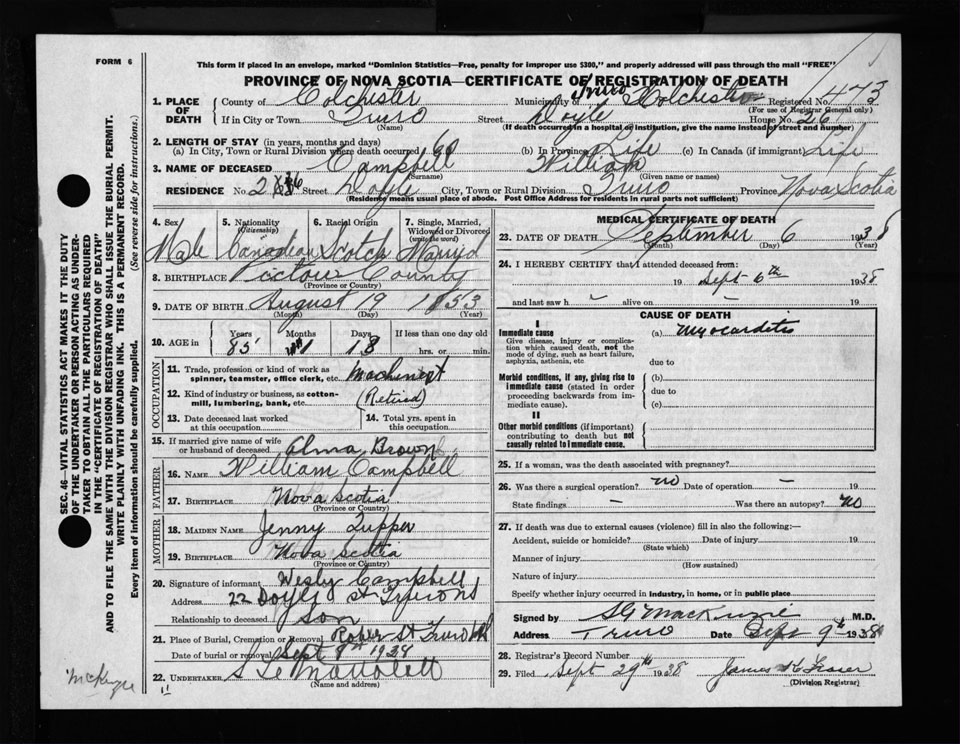 FORM 6
This form if placed in an envelope, marked "Dominion Statistics—Free, penalty for improper use $300," and properly addressed will pass through the mail "FREE"
PROVINCE OF NOVA SCOTIA—CERTIFICATE OF REGISTRATION OF DEATH
1. PLACE OF DEATH County of Colchester Municipality of Truro Colchester Registered No. 473
(For use of Registrar General only)
If in City or Town Truro Street Doyle House No. 26
(Name) (If death occurred in a hospital or institution, give the name instead of street and number)
2. LENGTH OF STAY (in years, months and days)
(a) In City, Town or Rural Division where death occurred 60 (b) In Province Life (c) In Canada (if immigrant) Life
3. NAME OF DECEASED Campbell William
(Surname) (Given name or names)
RESIDENCE No. 26 Street Doyle City, Town or Rural Division Truro Province Nova Scotia
(Residence means usual place of abode. Post Office Address for residents in rural parts not sufficient)
4. Sex 5. Nationality (Citizenship) 6. Racial Origin 7. Single, Married, Widowed or Divorced (write the word)
Male Canadian Scotch Married
8. BIRTHPLACE Pictou County
(Province or County)
9. DATE OF BIRTH August 19 1853
(Month) (Day) (Year)
10. AGE in Years Months Days If less than one day old
85 18 hrs. or min.
OCCUPATION
11. Trade, profession or kind of work as spinner, teamster, office clerk, etc. Machinist
12. Kind of industry or business, as cotton-mill, lumbering, bank, etc. (Retired)
13. Date deceased last worked at this occupation
14. Total yrs. spent in this occupation
15. If married give name of wife or husband of deceased Alma Brown
FATHER
16. NAME William Campbell
17. BIRTHPLACE Nova Scotia
(Province or County)
MOTHER
18. MAIDEN NAME Jenny Tupper
19. BIRTHPLACE Nova Scotia
(Province or County)
20. Signature of informant Wesly Campbell
Address 22 Doyle St Truro NS
Relationship to deceased Son
21. Place of Burial, Cremation or Removal Roper St Truro
Date of burial or removal Sept 8th 1938
22. UNDERTAKER
(Name and address)
MEDICAL CERTIFICATE OF DEATH
23. DATE OF DEATH September 6 1938
(Month) (Day) (Year)
24. I HEREBY CERTIFY that I attended deceased from:
19 Sept 6th 1938
and last saw h – alive on – 19
CAUSE OF DEATH
I
Immediate cause (a) Myocarditis
Give disease, injury or complication which caused death, not the mode of dying, such as heart failure, asphyxia, asthenia, etc.
due to
Morbid conditions, if any, giving rise to immediate cause (stated in order proceeding backwards from immediate cause).
(b)
due to
(c)
II
Other morbid conditions (if important) contributing to death but not causally related to immediate cause.
25. If a woman, was the death associated with pregnancy?
26. Was there a surgical operation? no Date of operation – 19
State findings – Was there an autopsy? no
27. If death was due to external causes (violence) fill in also the following:—
Accident, suicide or homicide? Date of injury 19
(State which)
Manner of injury
(How sustained)
Nature of injury
Specify whether injury occurred in industry, in home, or in public place
Signed by MacKenzie M.D.
Address Truro Date Sept 9th 1938
28. Registrar's Record Number
29. Filed Sept 29th 1938 James Fraser
(Division Registrar)
SEC. 46—VITAL STATISTICS ACT MAKES IT THE DUTY OF THE UNDERTAKER OR PERSON ACTING AS UNDERTAKER TO OBTAIN ALL THE PARTICULARS REQUIRED IN THE "CERTIFICATE OF REGISTRATION OF DEATH"
AND TO FILE THE SAME WITH THE DIVISION REGISTRAR WHO SHALL ISSUE THE BURIAL PERMIT.
WRITE PLAINLY WITH UNFADING INK. THIS IS A PERMANENT RECORD.
Every item of information should be carefully supplied. (See reverse side for instructions.)